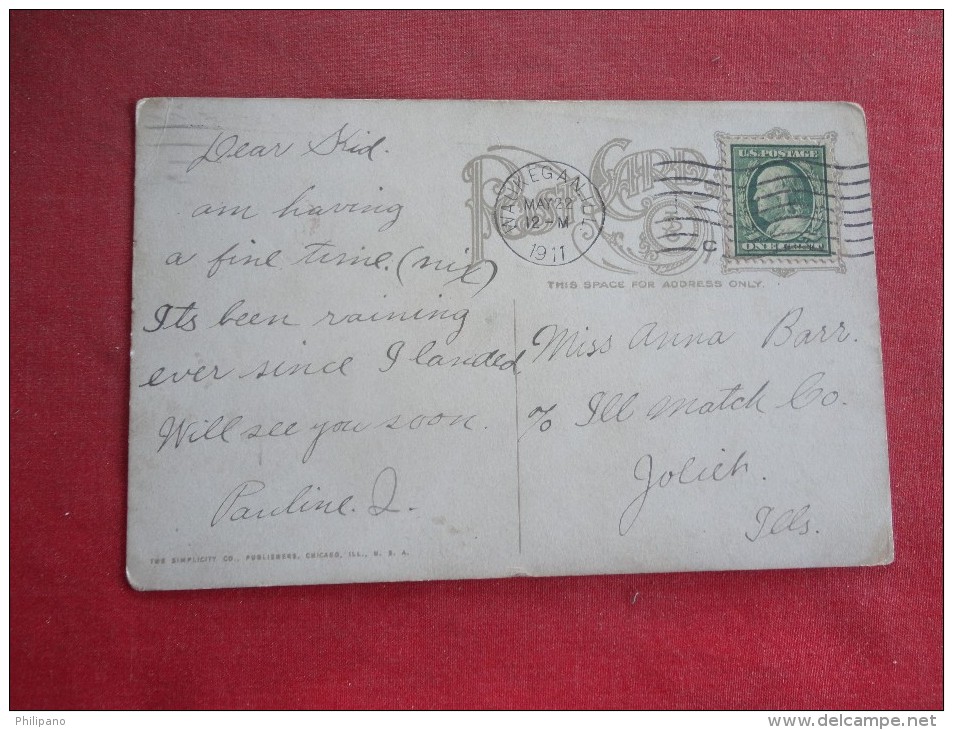 Dear Kid.
am having
a fine time. (nix)
Its been raining
ever since I landed
Will see you soon.
Pauline. Q.
THE SIMPLICITY CO., PUBLISHERS, CHICAGO, ILL., U. S. A.
POST CARD
WAUKEGAN, ILL.
MAY 22
12-M
1911
C
U.S. POSTAGE
ONE CENT
THIS SPACE FOR ADDRESS ONLY.
Miss Anna Barr.
c/o Ill Match Co.
Joliet.
Ills.
Philipano
delcampe.net